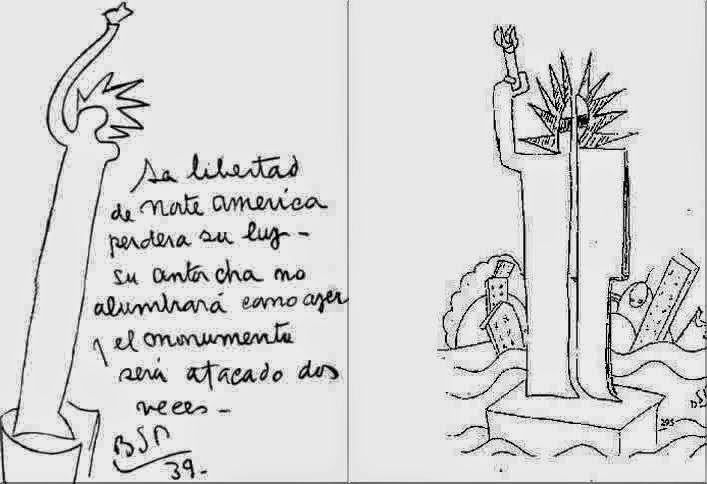 La libertad
de Norte america
perdera su luz -
su antorcha no
alumbrará como ayer
y el monumento
será atacado dos
veces -
BSP
39.-
BSP
295